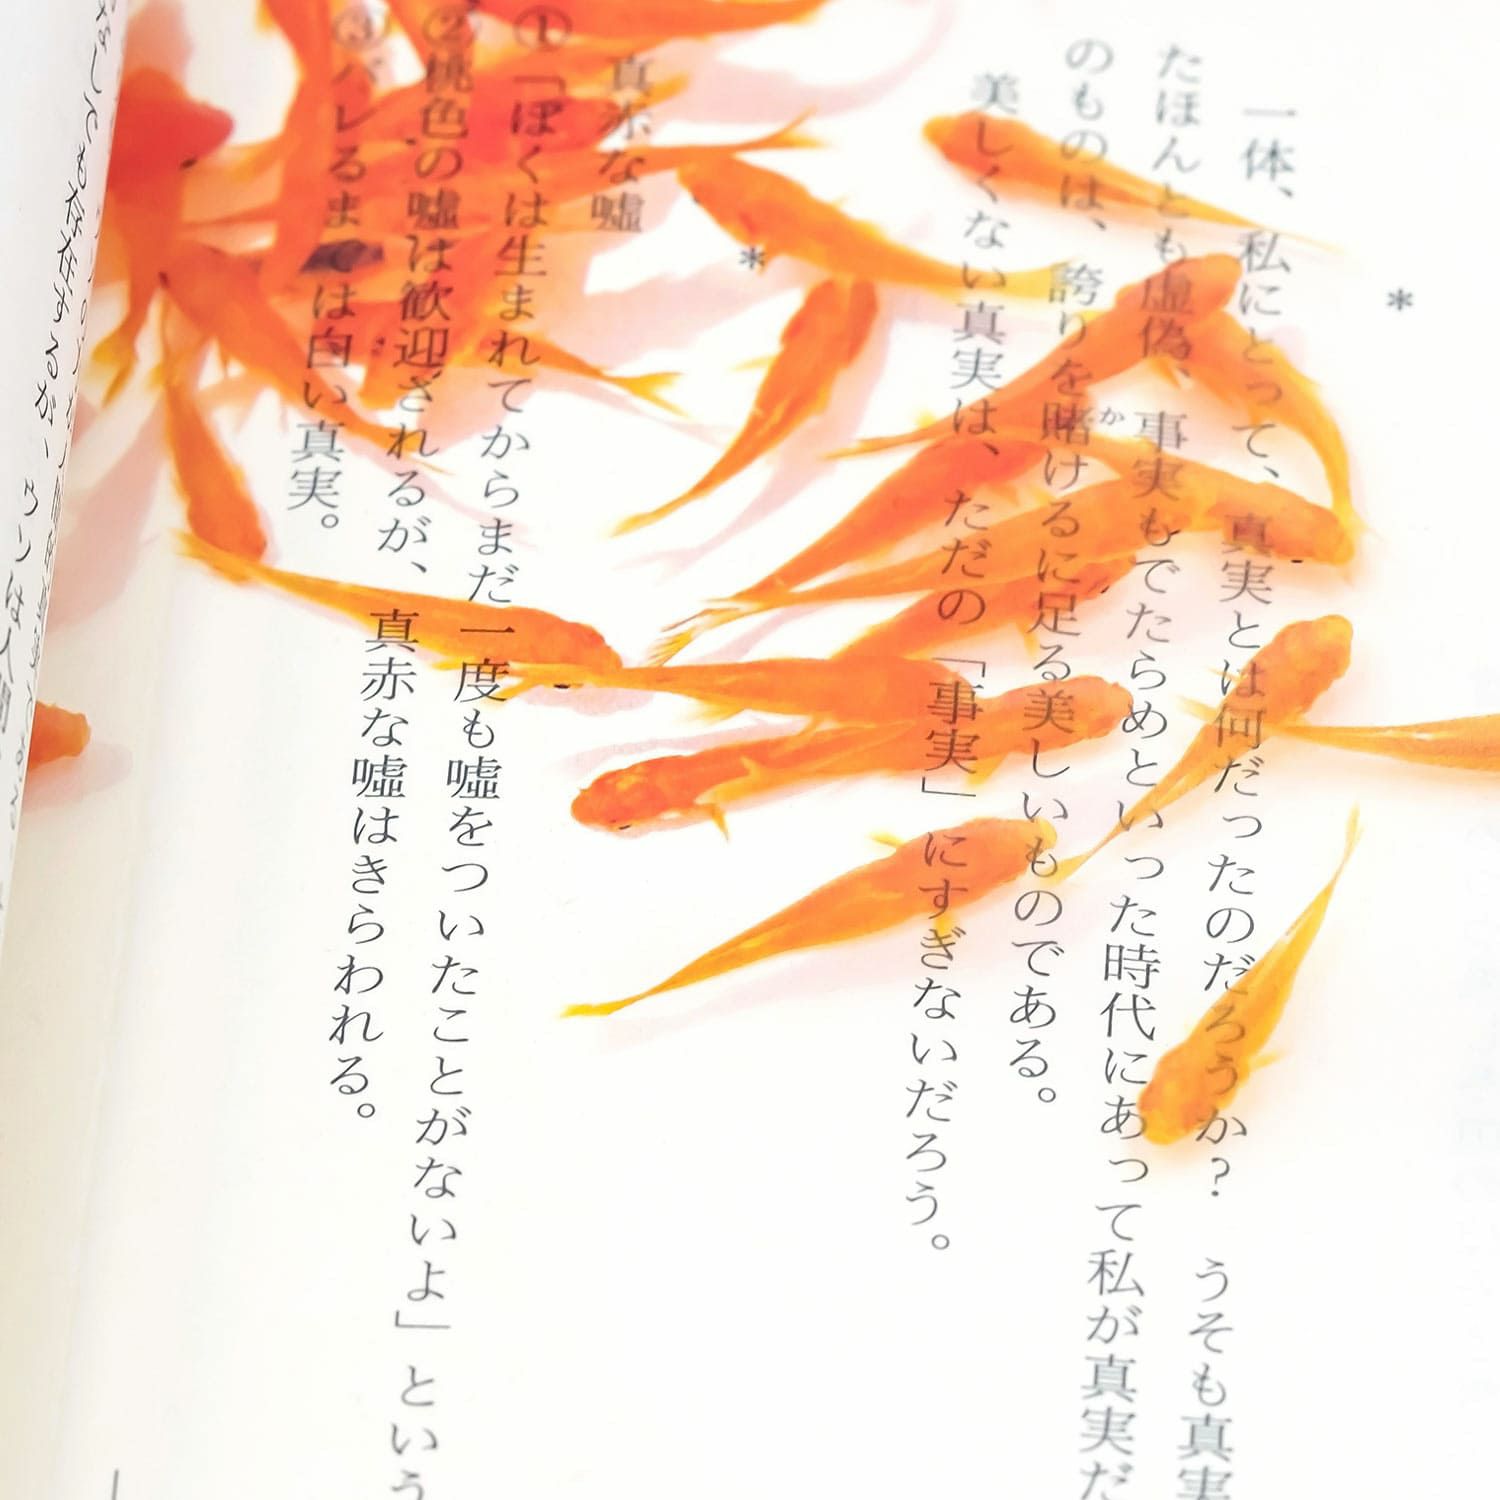 ＊
一体、私にとって、真実とは何だったのだろうか？　うそも真実
たほんとも虚偽、事実もでたらめといった時代にあって私が真実だ
のものは、誇りを賭けるに足る美しいものである。
か
美しくない真実は、ただの「事実」にすぎないだろう。
＊
真赤な嘘
①「ぼくは生まれてからまだ一度も嘘をついたことがないよ」という
②桃色の嘘は歓迎されるが、真赤な嘘はきらわれる。
③バレるまでは白い真実。
しても存在するが、ウソは人間